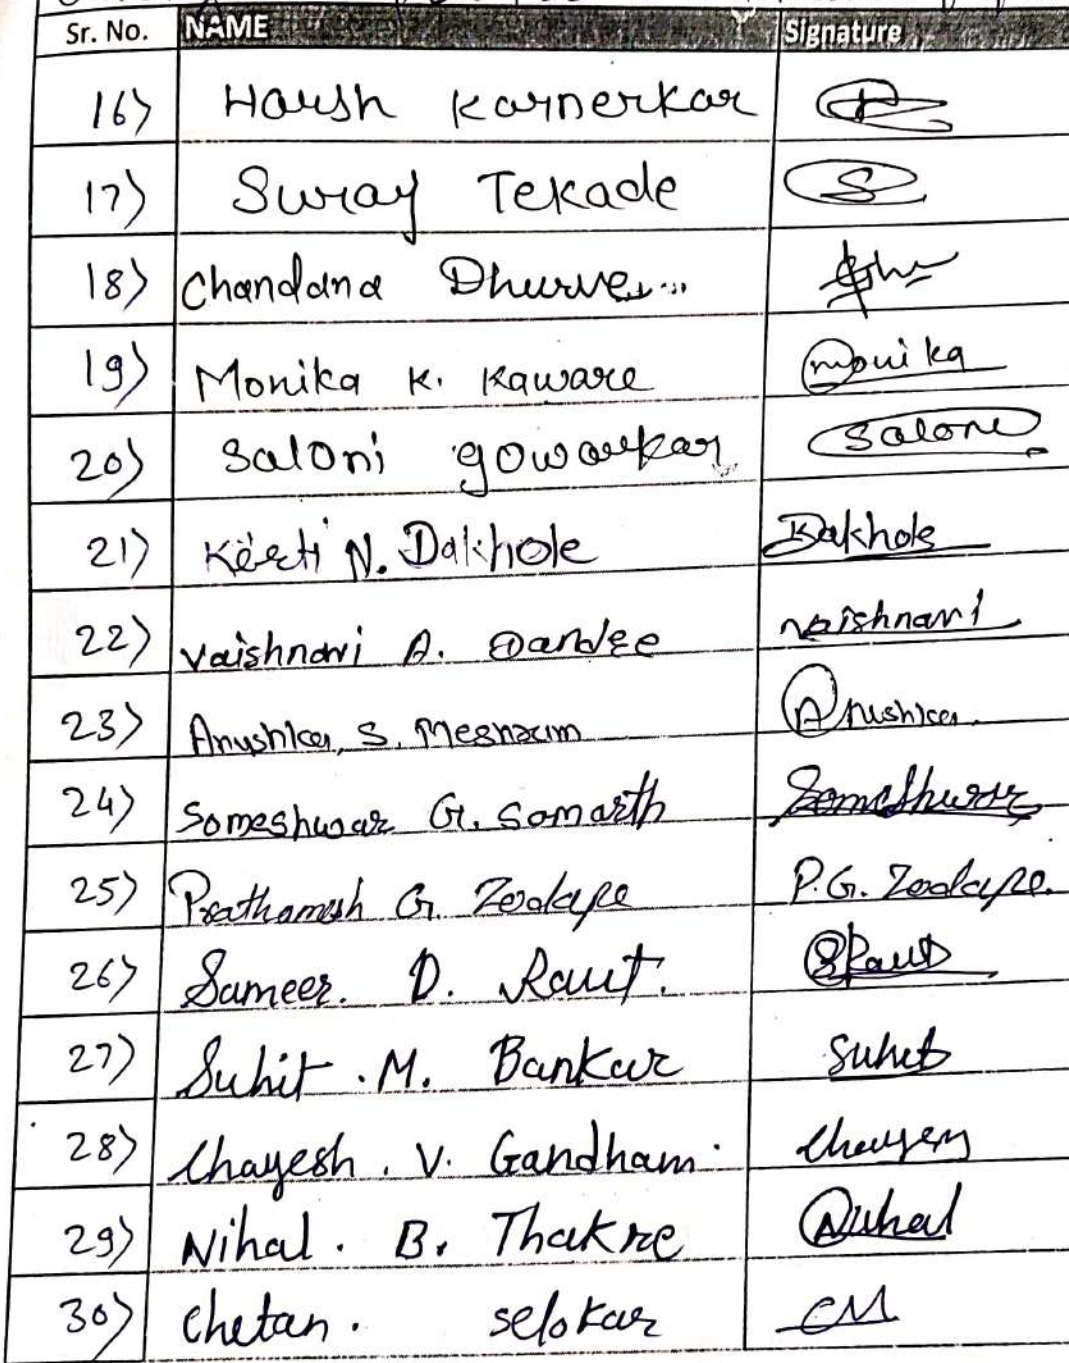 Sr. No. NAME Signature
16) Harsh Karnerkar
17) Suray Tekade S
18) Chandana Dhurve
19) Monika K. Kaware monika
20) Saloni gowarkar Saloni
21) Kirti N. Dakhole Dakhole
22) Vaishnavi A. Dandee vaishnavi
23) Anushka S. Mesharam Anushka
24) Someshwar G. Samarth Someshwar
25) Prathamesh G. Zodape P.G. Zodape.
26) Sameer. D. Raut. SRaut
27) Suhit . M. Bankar Suhit
28) Chayesh . V. Gandham. Chayesh
29) Nihal . B. Thakre Nihal
30) Chetan . selokar CM